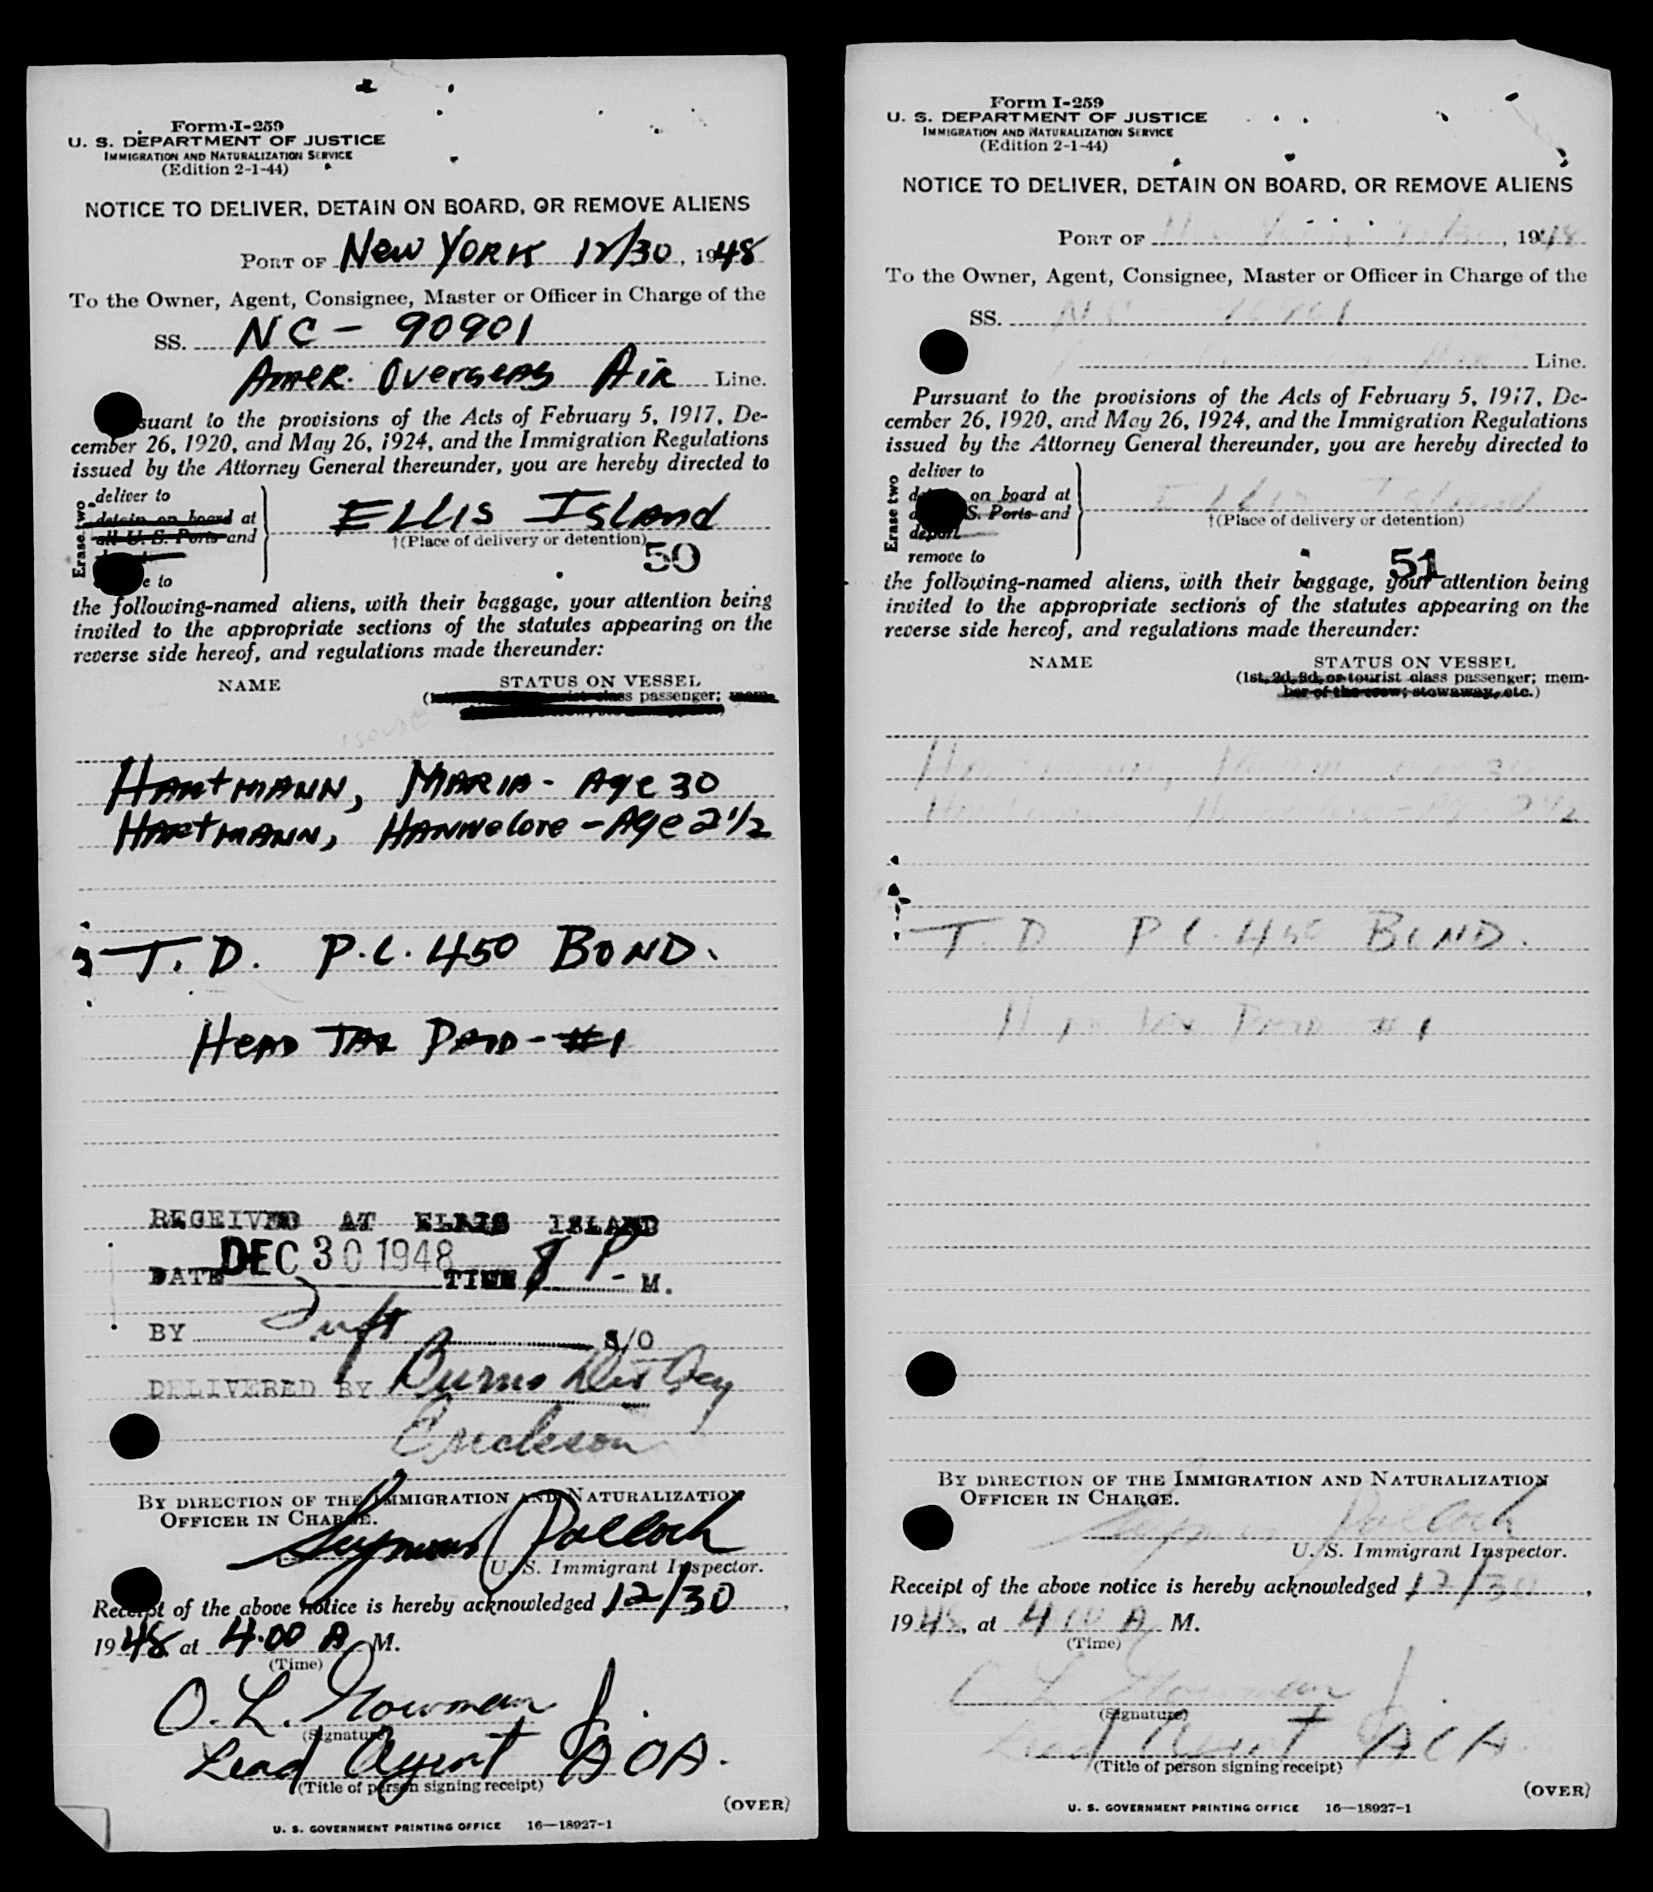 Form I-259
U. S. DEPARTMENT OF JUSTICE
IMMIGRATION AND NATURALIZATION SERVICE
(Edition 2-1-44)
NOTICE TO DELIVER, DETAIN ON BOARD, OR REMOVE ALIENS
PORT OF New YORK 12/30, 1948
To the Owner, Agent, Consignee, Master or Officer in Charge of the
SS. NC - 90901
Amer. Overseas Air Line.
suant to the provisions of the Acts of February 5, 1917, De-
cember 26, 1920, and May 26, 1924, and the Immigration Regulations
issued by the Attorney General thereunder, you are hereby directed to
Erase two
deliver to
detain on board at
all U. S. Ports and
e to
ELLIS ISLAND
†(Place of delivery or detention)
50
the following-named aliens, with their baggage, your attention being
invited to the appropriate sections of the statutes appearing on the
reverse side hereof, and regulations made thereunder:
NAME STATUS ON VESSEL
class passenger; mem-
HARTMANN, MARIA - Age 30
HARTMANN, HANNELORE - Age 2 1/2
T. D. P.C. 450 BOND.
HEAD TAX PAID - #1
RECEIVED AT ELLIS ISLAND
DATE DEC 30 1948 TIME 8 P - M.
BY S/O
DELIVERED BY Burns Det Agy
Erickson
BY DIRECTION OF THE IMMIGRATION AND NATURALIZATION
OFFICER IN CHARGE.
Seymour Pollock
U. S. Immigrant Inspector.
Receipt of the above notice is hereby acknowledged 12/30,
1948 at 4:00 A M.
(Time)
O. L. Jr.
(Signature)
Lead Agent AOA.
(Title of person signing receipt)
(OVER)
U. S. GOVERNMENT PRINTING OFFICE 16—18927-1
Form I-259
U. S. DEPARTMENT OF JUSTICE
IMMIGRATION AND NATURALIZATION SERVICE
(Edition 2-1-44)
NOTICE TO DELIVER, DETAIN ON BOARD, OR REMOVE ALIENS
PORT OF New York 12/30, 1948
To the Owner, Agent, Consignee, Master or Officer in Charge of the
SS. NC 90901
Air Line.
Pursuant to the provisions of the Acts of February 5, 1917, De-
cember 26, 1920, and May 26, 1924, and the Immigration Regulations
issued by the Attorney General thereunder, you are hereby directed to
Erase two
deliver to
on board at
S. Ports and
deport
remove to
Ellis Island
†(Place of delivery or detention)
51
the following-named aliens, with their baggage, your attention being
invited to the appropriate sections of the statutes appearing on the
reverse side hereof, and regulations made thereunder:
NAME STATUS ON VESSEL
(1st, 2d, 3d, or tourist class passenger; mem-
ber of the crew; stowaway, etc.)
Hartmann, Maria Age 30
Hartmann, Hannelore - Age 2 1/2
T. D. P.C. 450 BOND.
Head Tax PAID #1
BY DIRECTION OF THE IMMIGRATION AND NATURALIZATION
OFFICER IN CHARGE.
Seymour Pollock
U. S. Immigrant Inspector.
Receipt of the above notice is hereby acknowledged 12/30,
1948, at 4:00 A M.
(Time)
O L Jr.
(Signature)
Lead Agent AOA
(Title of person signing receipt)
(OVER)
U. S. GOVERNMENT PRINTING OFFICE 16—18927-1